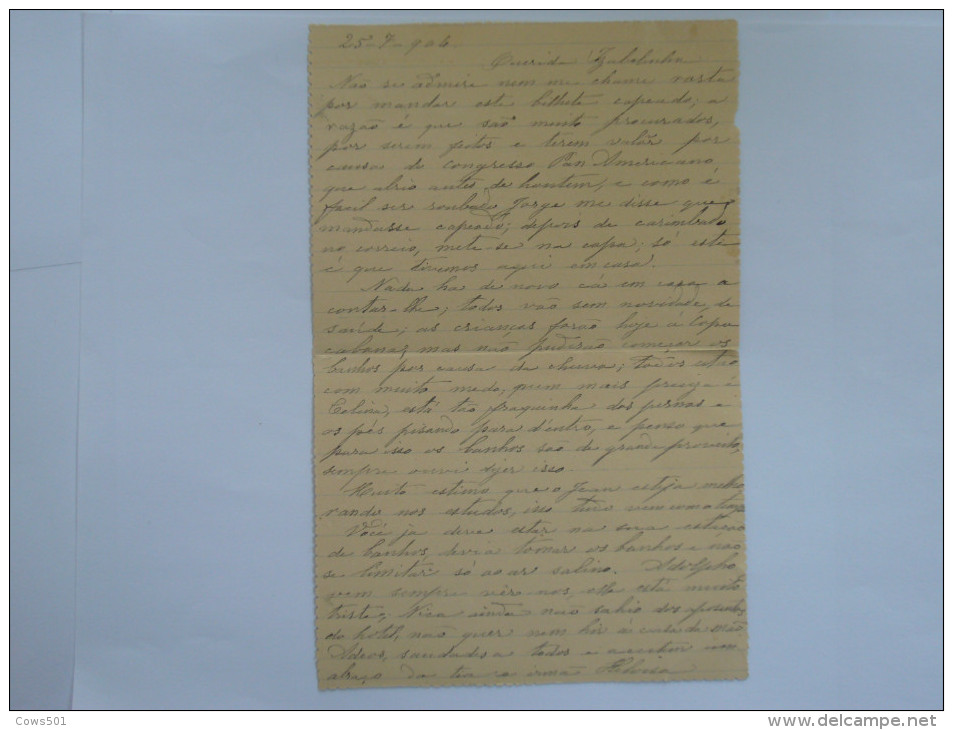 25-7-906
Querida Izabelinha
Não se admire nem me chame
por mandar este bilhete capeado; a
razão é que são muito procurados,
por serem feitos e terem valôr por
causa do congresso Pan Americano,
que abrio antes de hontem, e como é
facil ser roubado Jorge me disse que
mandasse capeado; depois de carimbado
no correio, mete-se na capa; só este
é que tivemos aqui em casa.
Nada ha de novo cá em casa a
contar-lhe; todos vão sem novidade de
saúde; as crianças forão hoje á Copa
cabana, mas não puderão começar os
banhos por causa da chuva; todos estão
com muito medo, quem mais preciza é
Celina, está tão fraquinha das pernas e
os pés pisando para dentro, e penso que
para isso os banhos são de grande proveito,
sempre ouvi dizer isso.
Muito estimo que o Jean esteja melho
rando nos estudos, isso
Você ja deve estar na sua estação
de banhos, devia tomar os banhos e não
se limitar só ao ar salino. Adolpho
vem sempre vêr-nos, elle está muito
triste; Nica ainda não sahio dos aposentos
do hotel, não quer nem hir á casa da mãe
Adeos, saudades a todos e aceitem um
abraço da tia e irmã Heloisa
Cows501
www.delcampe.net